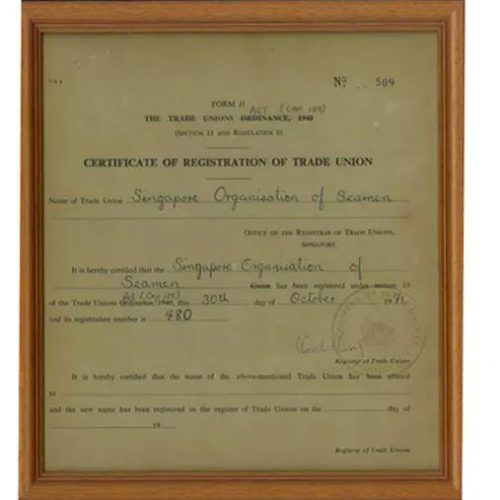 Nº .. 509
FORM D
ACT (CAP 129)
THE TRADE UNIONS ORDINANCE, 1940
(SECTION 11 AND REGULATION 6)
CERTIFICATE OF REGISTRATION OF TRADE UNION
Name of Trade Union Singapore Organisation of Seamen
OFFICE OF THE REGISTRAR OF TRADE UNIONS,
SINGAPORE.
It is hereby certified that the Singapore Organisation of
Seamen Union has been registered under section 10
Act (Cap 129)
of the Trade Unions Ordinance, 1940, this 30th day of October
and its registration number is 480
Registrar of Trade Unions
It is hereby certified that the name of the above-mentioned Trade Union has been altered
to
and the new name has been registered in the register of Trade Unions on the day of
19
Registrar of Trade Unions